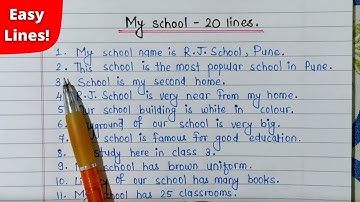 Easy
Lines!
My school - 20 lines.
1. My school name is R.J. School, Pune.
2. This school is the most popular school in Pune.
3. School is my second home.
4. R.J. School is very near from my home.
5. Our school building is white in colour.
6. ground of our school is very big.
7. school is famous for good education.
8. study here in class 3.
9. school has brown uniform.
10. of our school has many books.
11. My school has 25 classrooms.